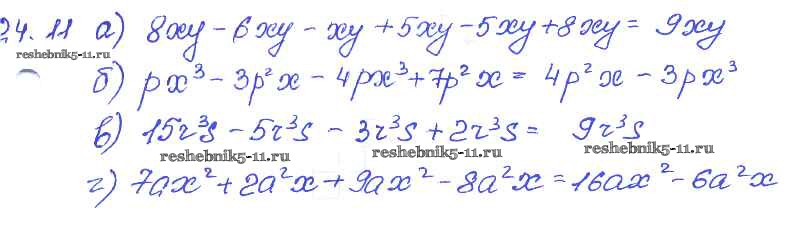 24.11 а) 8xy - 6xy - xy + 5xy - 5xy + 8xy = 9xy
reshebnik5-11.ru
б) px³ - 3p²x - 4px³ + 7p²x = 4p²x - 3px³
в) 15r³s - 5r³s - 3r³s + 2r³s = 9r³s
reshebnik5-11.ru reshebnik5-11.ru reshebnik5-11.ru
г) 7ax² + 2a²x + 9ax² - 8a²x = 16ax² - 6a²x